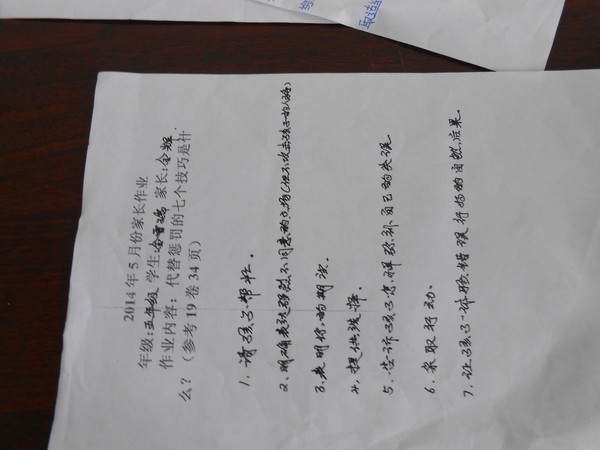 2014年5月份家长作业
年级:五年级 学生:金晋瑞 家长:金辉
作业内容：代替惩罚的七个技巧是什
么？（参考19卷34页）
1、请孩子帮忙.
2、明确表达强烈不同意的立场(但不攻击孩子的人格)
3、表明你的期望.
4、提供选择.
5、告诉孩子怎样弥补自己的失误
6、采取行动、
7、让孩子体验错误行为的自然后果.